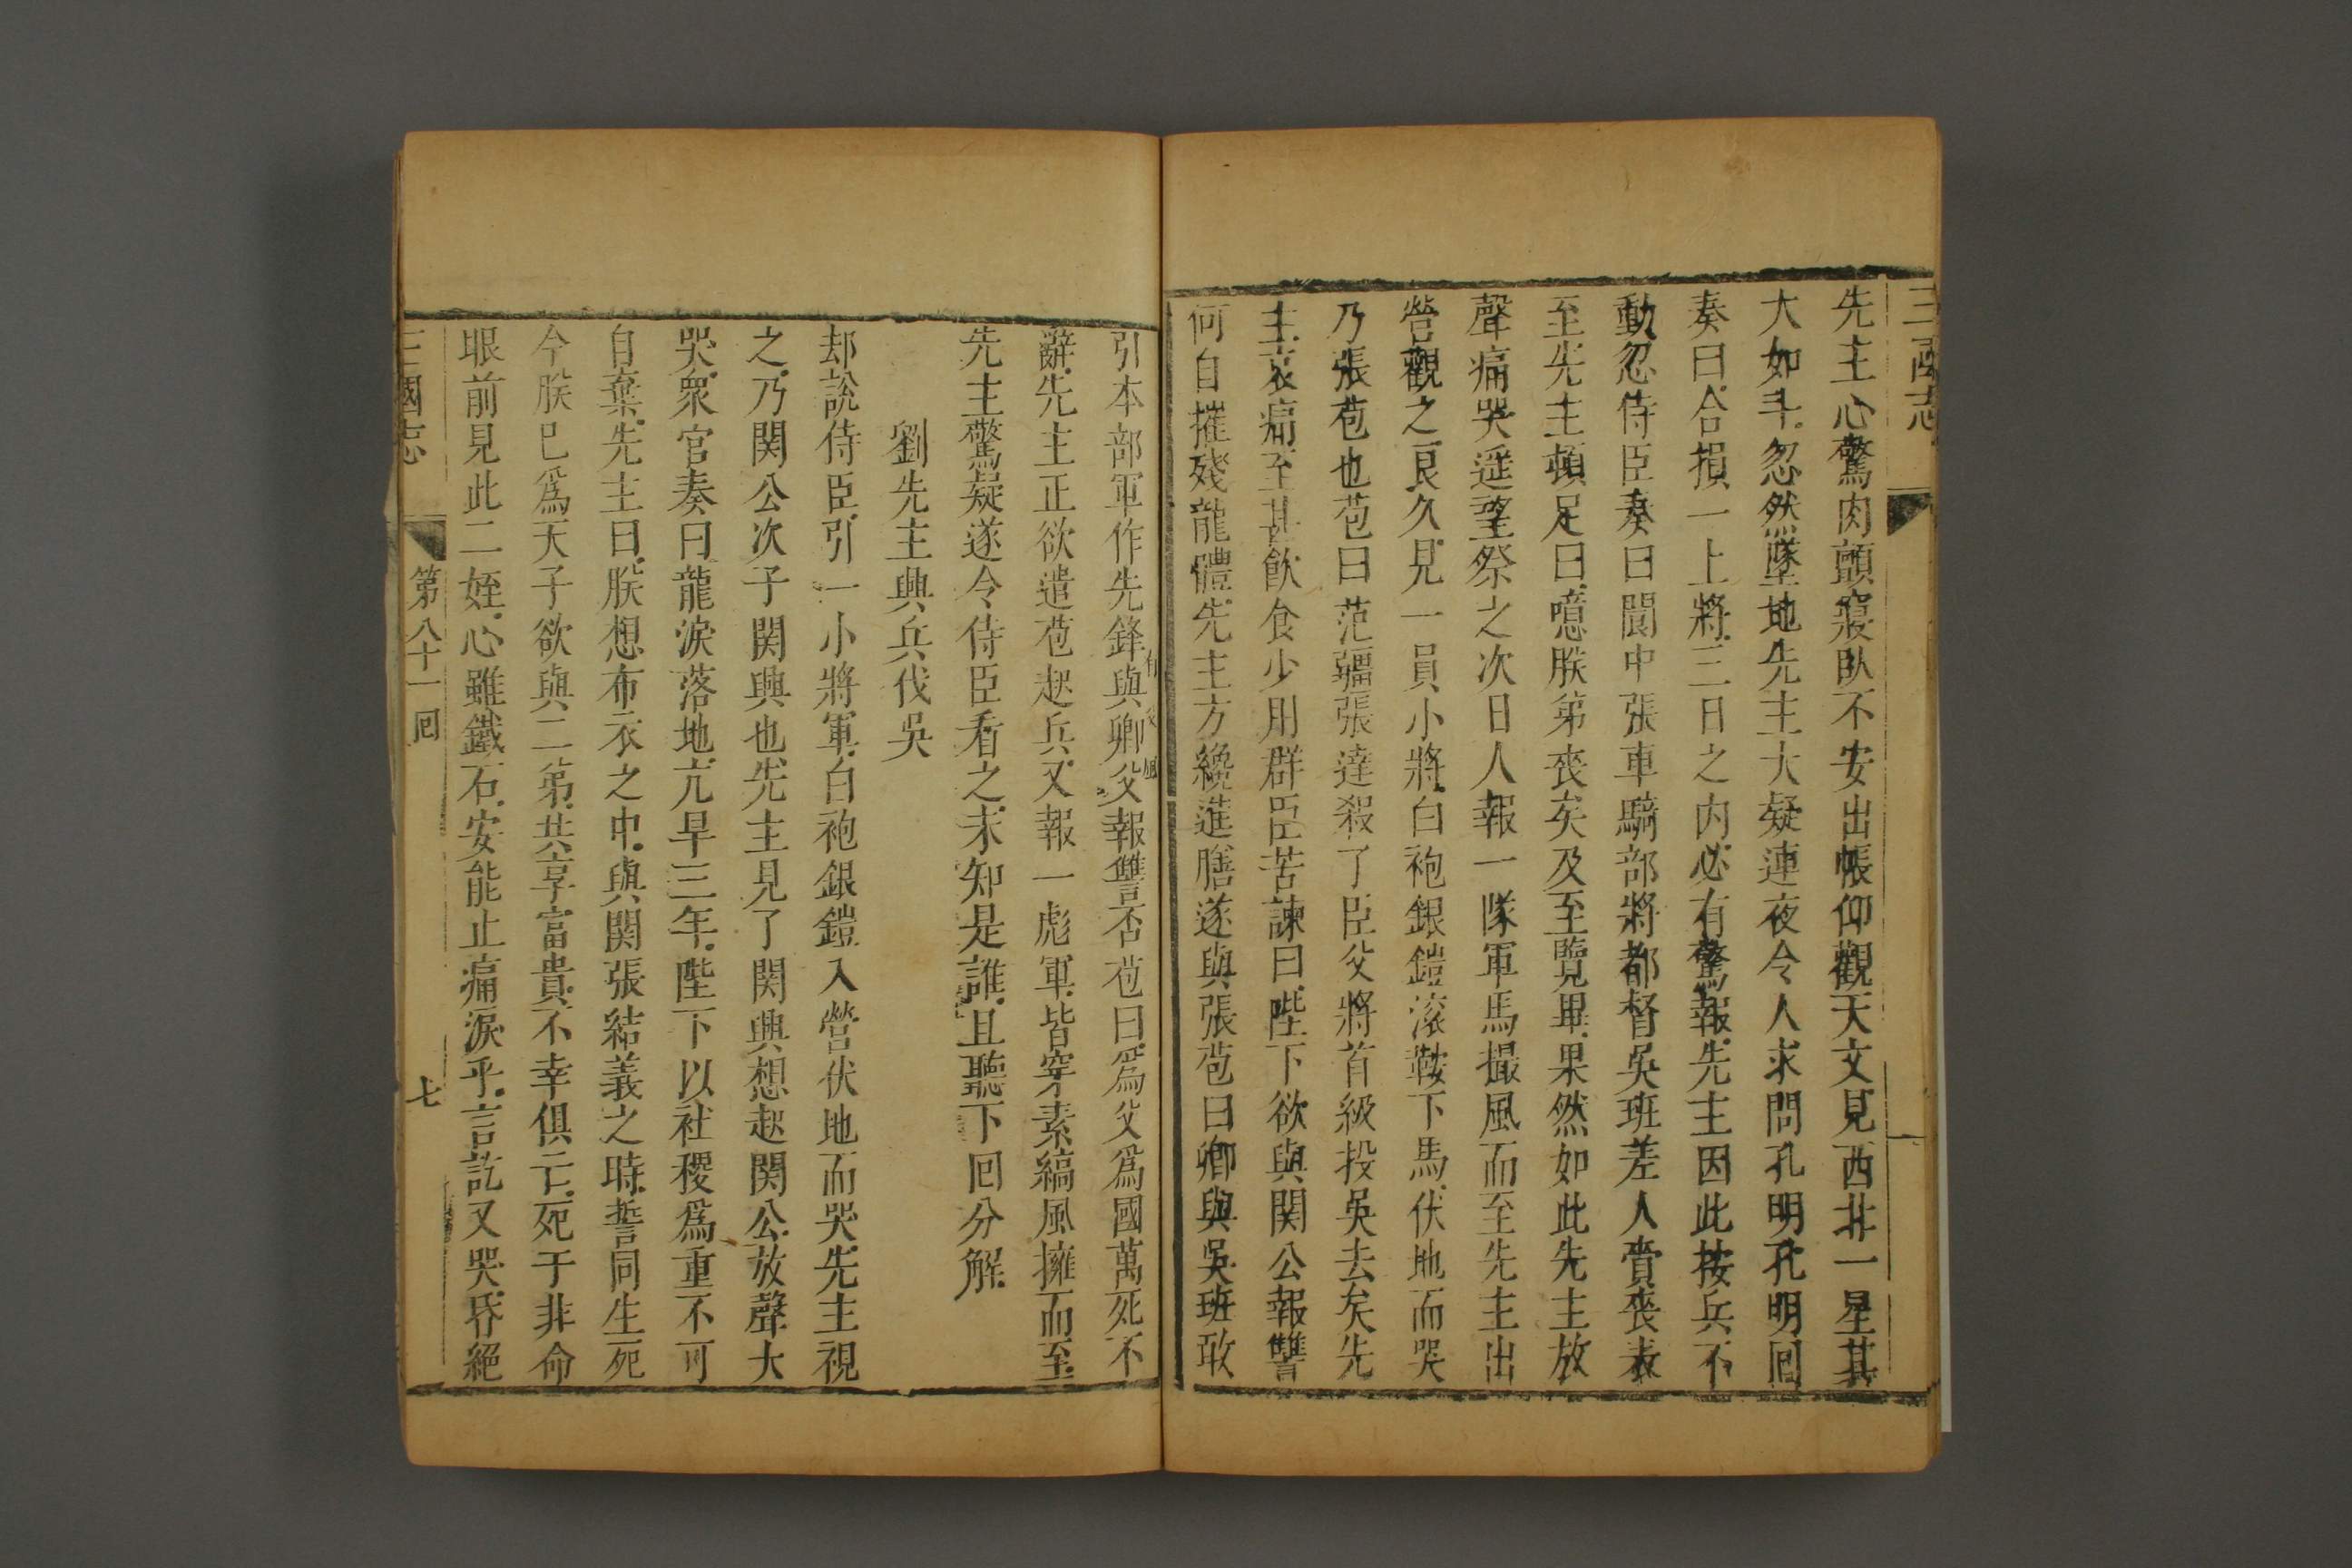 三國志
先主心驚肉顫寢臥不安出帳仰觀天文見西北一星其
大如斗忽然墜地先主大疑連夜令人求問孔明孔明囘
奏曰合損一上將三日之内必有驚報先主因此按兵不
動忽侍臣奏曰閬中張車騎部將都督吳班差人賫喪表
至先主頓足曰噫朕弟喪矣及至覽畢果然如此先主放
聲痛哭遥望祭之次日人報一隊軍馬撮風而至先主出
營觀之良久見一員小將白袍銀鎧滚鞍下馬伏地而哭
乃張苞也苞曰范疆張達殺了臣父將首級投吳去矣先
主哀痛至甚飲食少用群臣苦諫曰陛下欲與関公報讐
何自摧殘龍體先主方纔進膳遂與張苞曰卿與吳班敢
引本部軍作先鋒與卿父報讐否苞曰爲父爲國萬死不
有父風
辭先主正欲遣苞起兵又報一彪軍皆穿素縞風擁而至
先主驚疑遂令侍臣看之未知是誰且聽下囘分解
劉先主興兵伐吳
却說侍臣引一小將軍白袍銀鎧入營伏地而哭先主視
之乃関公次子関興也先主見了関興想起関公放聲大
哭衆官奏曰龍淚落地亢旱三年陛下以社稷爲重不可
自棄先主曰朕想布衣之中與関張結義之時誓同生死
今朕已爲天子欲與二弟共享富貴不幸俱亡死于非命
眼前見此二姪心雖鐵石安能止痛淚乎言訖又哭昏絕
三國志
第八十一囘
七